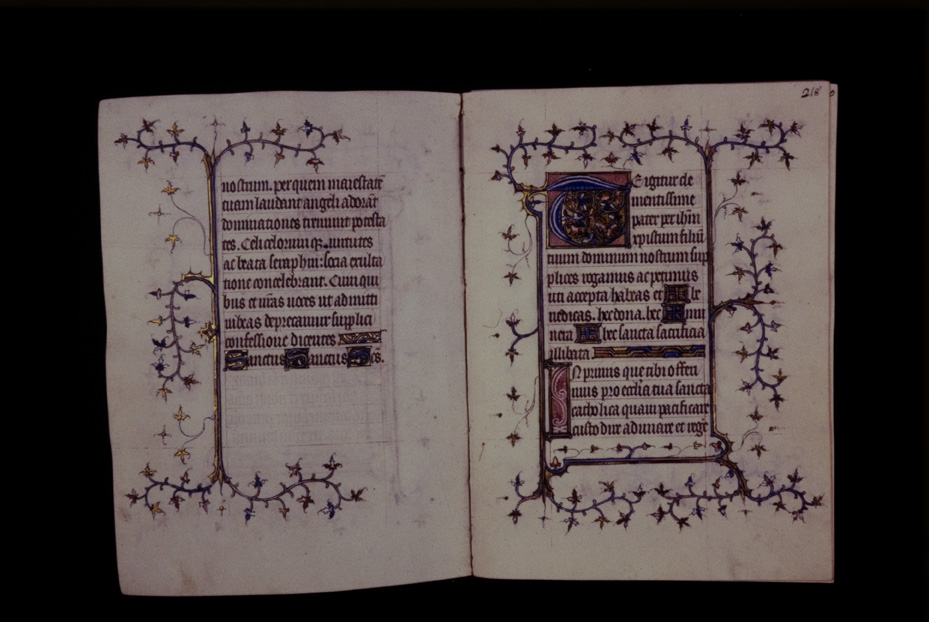 nostrum. per quem maiestatē
tuam laudant angeli adorāt
dominationes tremunt potesta
tes. Celi celorum q3. uirtutes
ac beata seraphin: socia exulta
tione concelebrant. Cum qui
bus et nr̄as uoces ut admitti
iubeas deprecamur supplici
confessione dicentes
Sanctus Sanctus Sc̄s.
218
Te igitur cle
mentissime
pater per ihm̄
xpistum filiū
tuum dominum nostrum sup
plices rogamus ac petimus
uti accepta habeas et be
nedicas. hec dona. hec mu
nera hec sancta sacrificia
illibata
In primis que tibi offeri
mus pro ecclia tua sancta
catholica quam pacificare
custodire adunare et rege